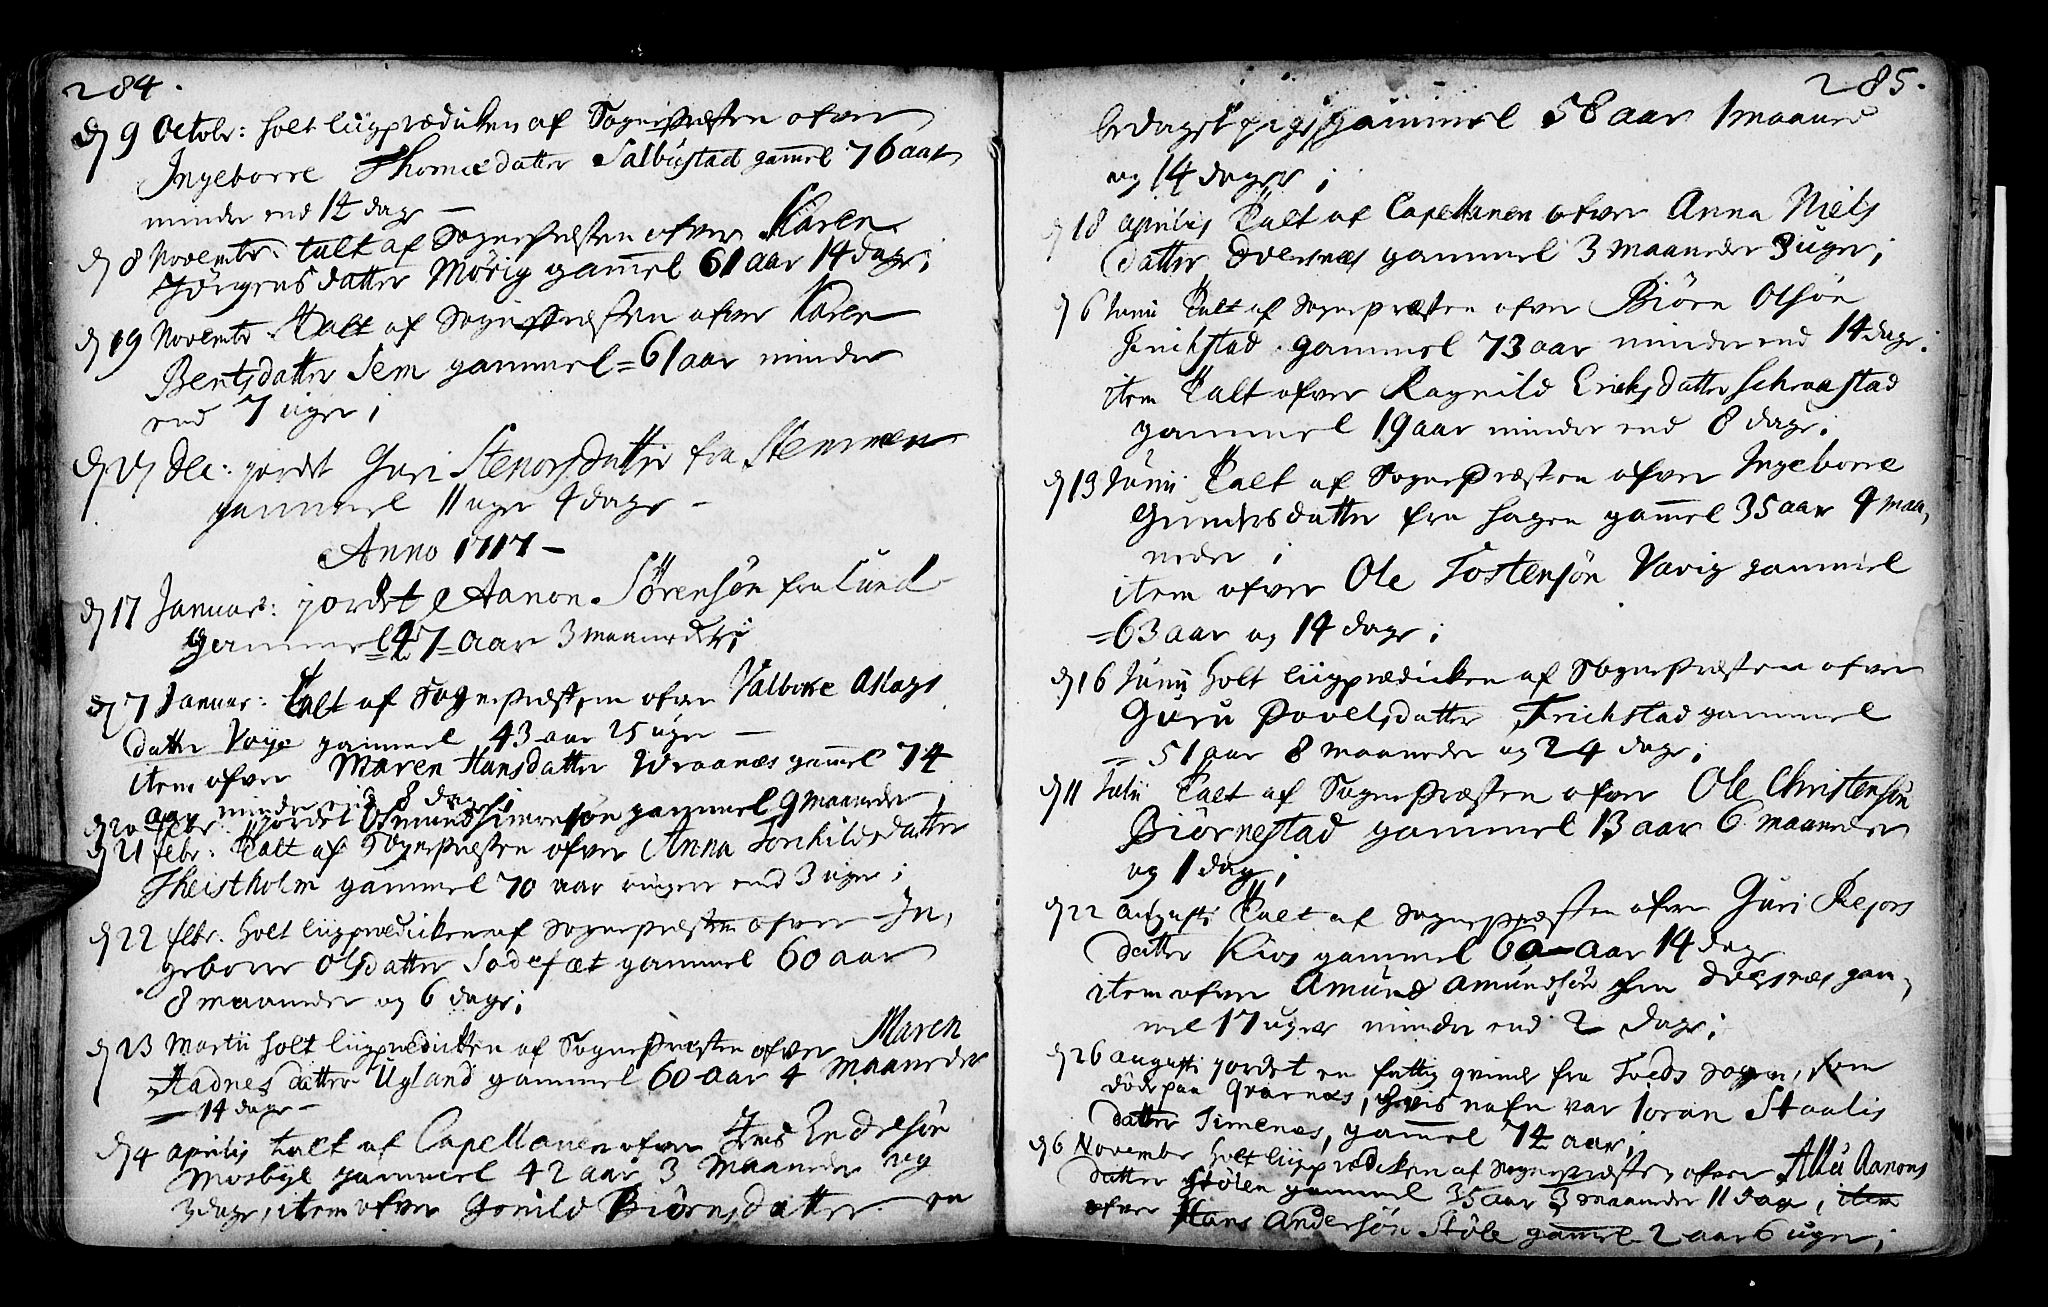 284.
D 9 Octobr: holt liigprædicken af Sognepræsten ofver
Ingeborre Thomædatter Salbustad gamel 76 aar
minder end 14 dage –
D 8 Novembr: talt af Sognepræsten ofver Karen
Jørgensdatter Mørig gamel 61 aar 14 dage;
D 19 Novembr. Talt af Sognepræsten ofver Karen
Bentsdatter Sem gammel = 61 aar minder
end 7 uger;
D 27 Dec: jordet Guri Stenorsdatter fra Stemmen
gammel 11 uger 4 dage –
Anno 1717 –
D 17 Januar: jordet Aanon Sørensøn fra Lund
gammel 47 aar 3 maaneder;
D 7 Januar: Talt af Sognepræsten ofver Valborre Aslags
datter Voye gammel 43 aar 25 uger –
item ofver Maren Hansdatter Wraanæs gamel 74
aar minder end 8 dage;
D 20 febr: jordet Osmund Simensøn gammel 9 maaneder,
D 21 febr: Talt af Sognepræsten ofver Anna Torkildsdatter
Theistholm gammel 70 aar ringere end 3 uger;
D 22 febr. holt liigprædicken af Sognepræsten ofver In,
geborre Olsdatter Sodefæt gammel 60 aar
8 maaneder og 6 dage;
D 23 Martii holt liigprædicken af Sognepræsten ofver Maren
Aadnesdatter Ugland gammel 60 aar 4 maaneder
– 14 dage –
D 4 Aprilis talt af Capellanen ofver Jens Endresøn
Mosbye gammel 42 aar 3 maaneder og
3 dage, item ofver Gonild Biørnsdatter en
285.
bedaget pige gammel 58 aar 1 maaned
og 14 dage;
D 18 Aprilis Talt af Capellanen ofver Anna Niels
datter Dversnæs gammel 3 maaneder 3 uger;
D 6 Junii Talt af Sognepræsten ofver Biørn Olsøn
Frichstad gammel 73 aar minder end 14 dage.
item Talt ofver Ragnild Ericksdatter Schraastad
gammel 19 aar minder end 8 dage.
D 13 Junii Talt af Sognepræsten ofver Ingeborre
Gundersdatter fra Hagen gamel 35 aar 4 maa,
neder;
item ofver Ole Tostensøn Varig gammel
= 63 aar og 14 dage;
D 16 Junii holt liigprædicken af Sognepræsten ofver
Guru Povelsdatter Frichstad gammel
= 51 aar 8 maaneder og 24 dage;
D 11 Julii Talt af Sognepræsten ofver Ole Christensøn
Biørnestad gammel 13 aar 6 maaneder
og 1 dag;
D 22 Augusti Talt af Sognepræsten ofver Guri Rejors
datter Kios gammel 60 aar 14 dage
item ofver Amund Amundsøn fra Dversnæs gam,
mel 17 uger minder end 2 dage;
D 26 Augusti jordet en fattig qvinde fra Tveds Sogn, som
døde paa Qvarnæs, hvis nafn var Joran Staalis
datter Timenes, gamel 74 aar;
D 6 November holt liigprædicken af Sognepræsten ofver Allu Aanons
datter Støfen gammel 35 aar 3 maaneder 11 dage, item
ofver Hans Andersøn Støle gamel 2 aar 6 uger;